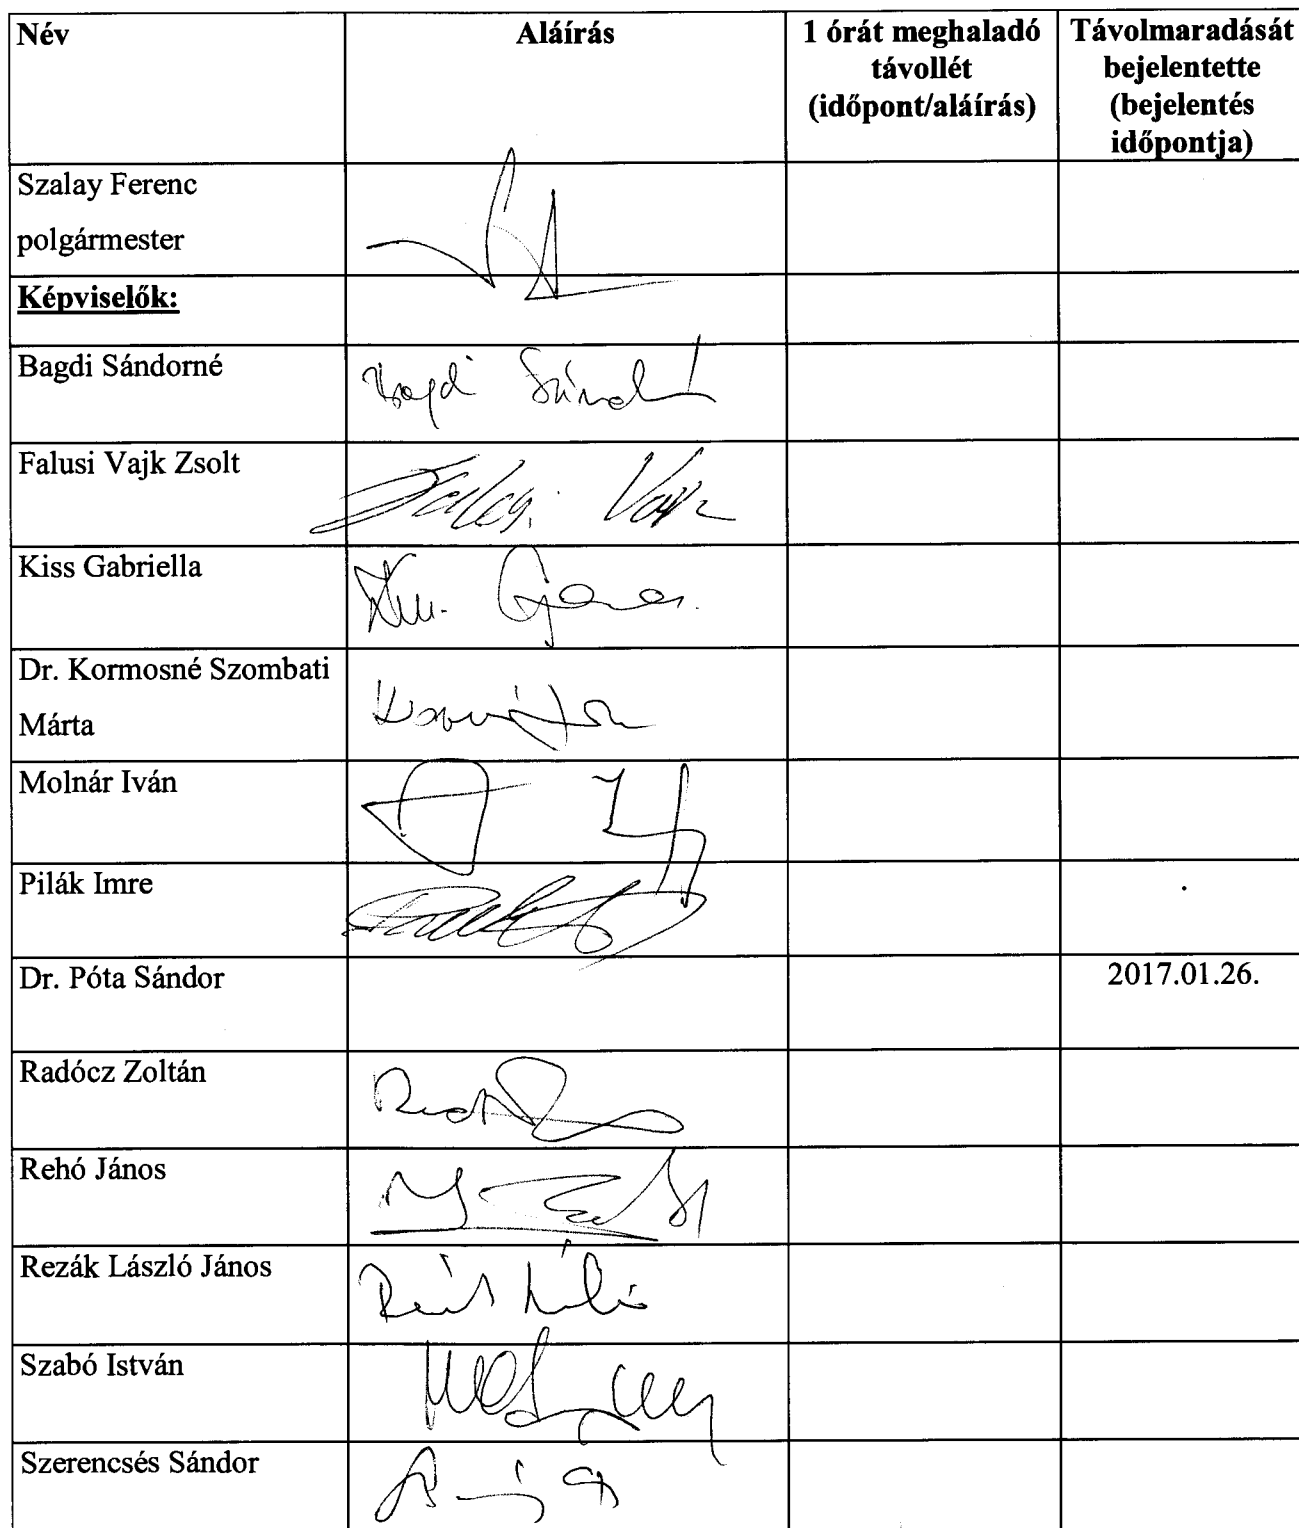 Név
Aláírás
1 órát meghaladó
távollét
(időpont/aláírás)
Távolmaradását
bejelentette
(bejelentés
időpontja)
Szalay Ferenc
polgármester
Képviselők:
Bagdi Sándorné
Falusi Vajk Zsolt
Falusi Vajk
Kiss Gabriella
Dr. Kormosné Szombati
Márta
Molnár Iván
Pilák Imre
Dr. Póta Sándor
2017.01.26.
Radócz Zoltán
Rehó János
Rezák László János
Szabó István
Szerencsés Sándor